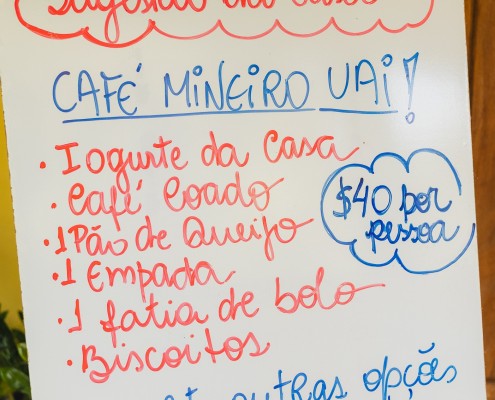 Sugestão da Casa
CAFÉ MINEIRO UAI!
• Iogurte da Casa
• Café Coado
• 1 Pão de Queijo
• 1 Empada
• 1 fatia de bolo
• Biscoitos
$40 por
pessoa
outras opções